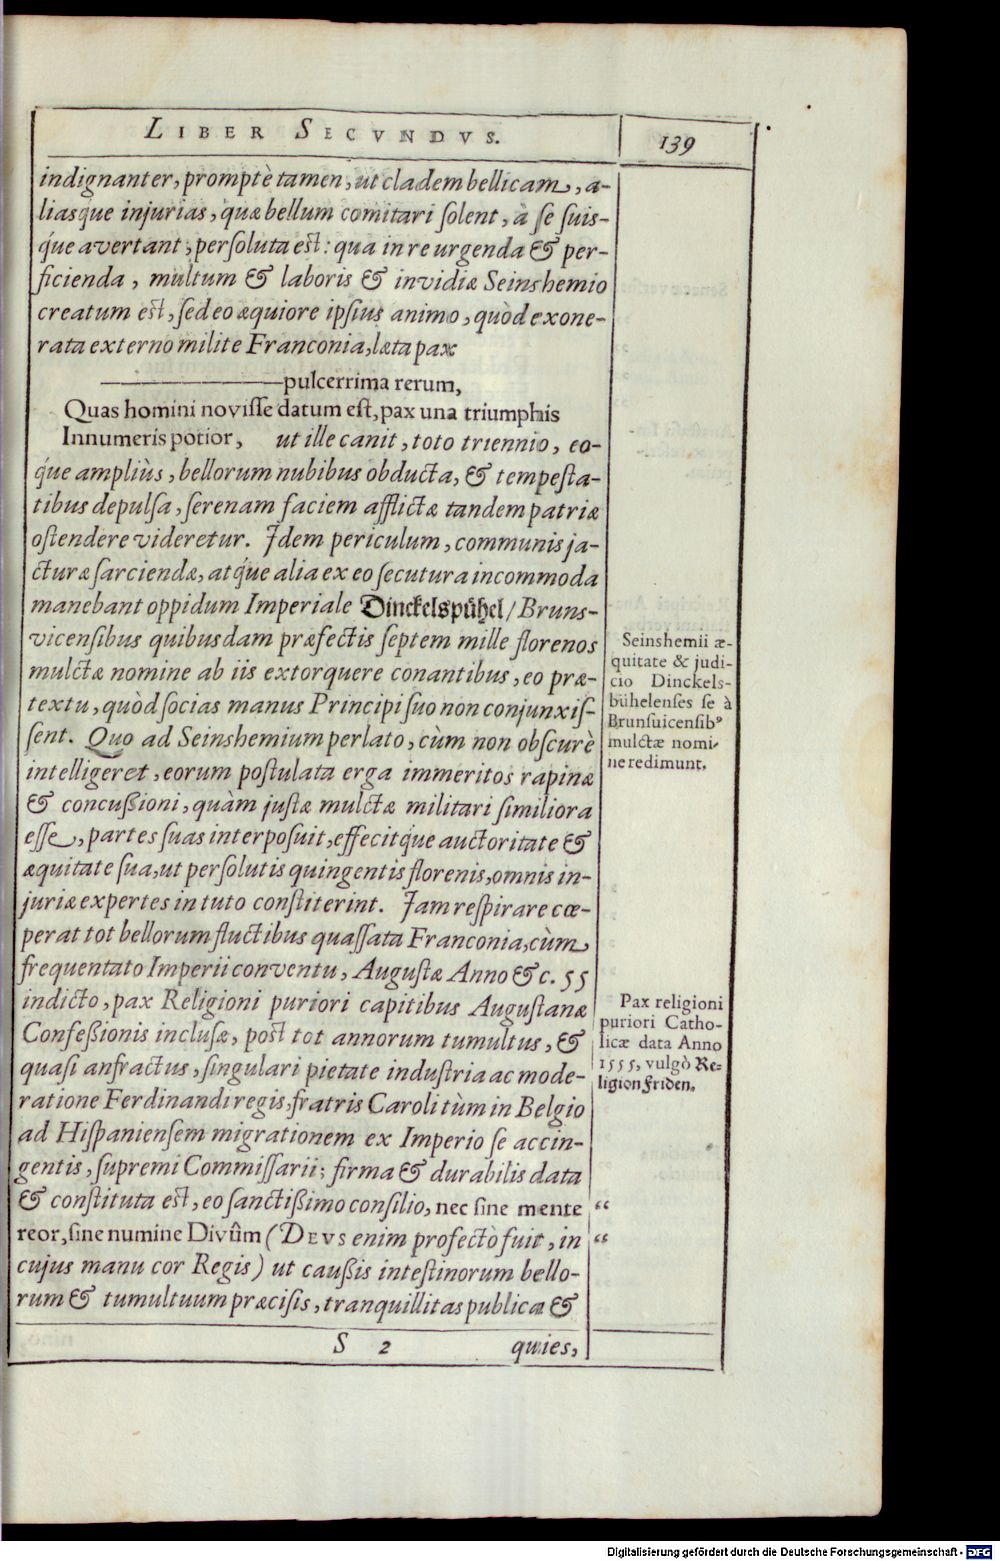 LIBER SECVNDVS.
139
indignanter, promptè tamen, ut cladem bellicam, a-
liasq́ue injurias, quæ bellum comitari solent, à se suis-
q́ue avertant, persoluta est: qua in re urgenda & per-
ficienda, multum & laboris & invidiæ Seinshemio
creatum est, sed eo æquiore ipsius animo, quòd exone-
rata externo milite Franconia, læta pax
——————pulcerrima rerum,
Quas homini novisse datum est, pax una triumphis
Innumeris potior, ut ille canit, toto triennio, eo-
q́ue ampliùs, bellorum nubibus obducta, & tempesta-
tibus depulsa, serenam faciem afflictæ tandem patriæ
ostendere videretur. Idem periculum, communis ja-
cturæ sarciendæ, atq́ue alia ex eo secutura incommoda
manebant oppidum Imperiale Dinckelspühel/ Bruns-
vicensibus quibusdam præfectis septem mille florenos
mulctæ nomine ab iis extorquere conantibus, eo præ-
textu, quòd socias manus Principi suo non conjunxis-
sent. Quo ad Seinshemium perlato, cùm non obscurè
intelligeret, eorum postulata erga immeritos rapinæ
& concußioni, quàm justæ mulctæ militari similiora
esse, partes suas interposuit, effecitq́ue auctoritate &
æquitate sua, ut persolutis quingentis florenis, omnis in-
juriæ expertes in tuto constiterint. Iam respirare cœ-
perat tot bellorum fluctibus quassata Franconia, cùm
frequentato Imperii conventu, Augustæ Anno &c. 55
indicto, pax Religioni puriori capitibus Augustanæ
Confeßionis inclusæ, post tot annorum tumultus, &
quasi anfractus, singulari pietate industria ac mode-
ratione Ferdinandi regis, fratris Caroli tùm in Belgio
ad Hispaniensem migrationem ex Imperio se accin-
gentis, supremi Commissarii; firma & durabilis data
& constituta est, eo sanctißimo consilio, nec sine mente “
reor, sine numine Divûm (DEVS enim profectò fuit, in “
cujus manu cor Regis) ut caußis intestinorum bello-
rum & tumultuum præcisis, tranquillitas publica &
S 2 quies,
Seinshemii æ-
quitate & judi-
cio Dinckels-
bühelenses se à
Brunsuicensibꝰ
mulctæ nomi-
ne redimunt.
Pax religioni
puriori Catho-
licæ data Anno
1555, vulgò Re-
ligion friden.
Digitalisierung gefördert durch die Deutsche Forschungsgemeinschaft - DFG